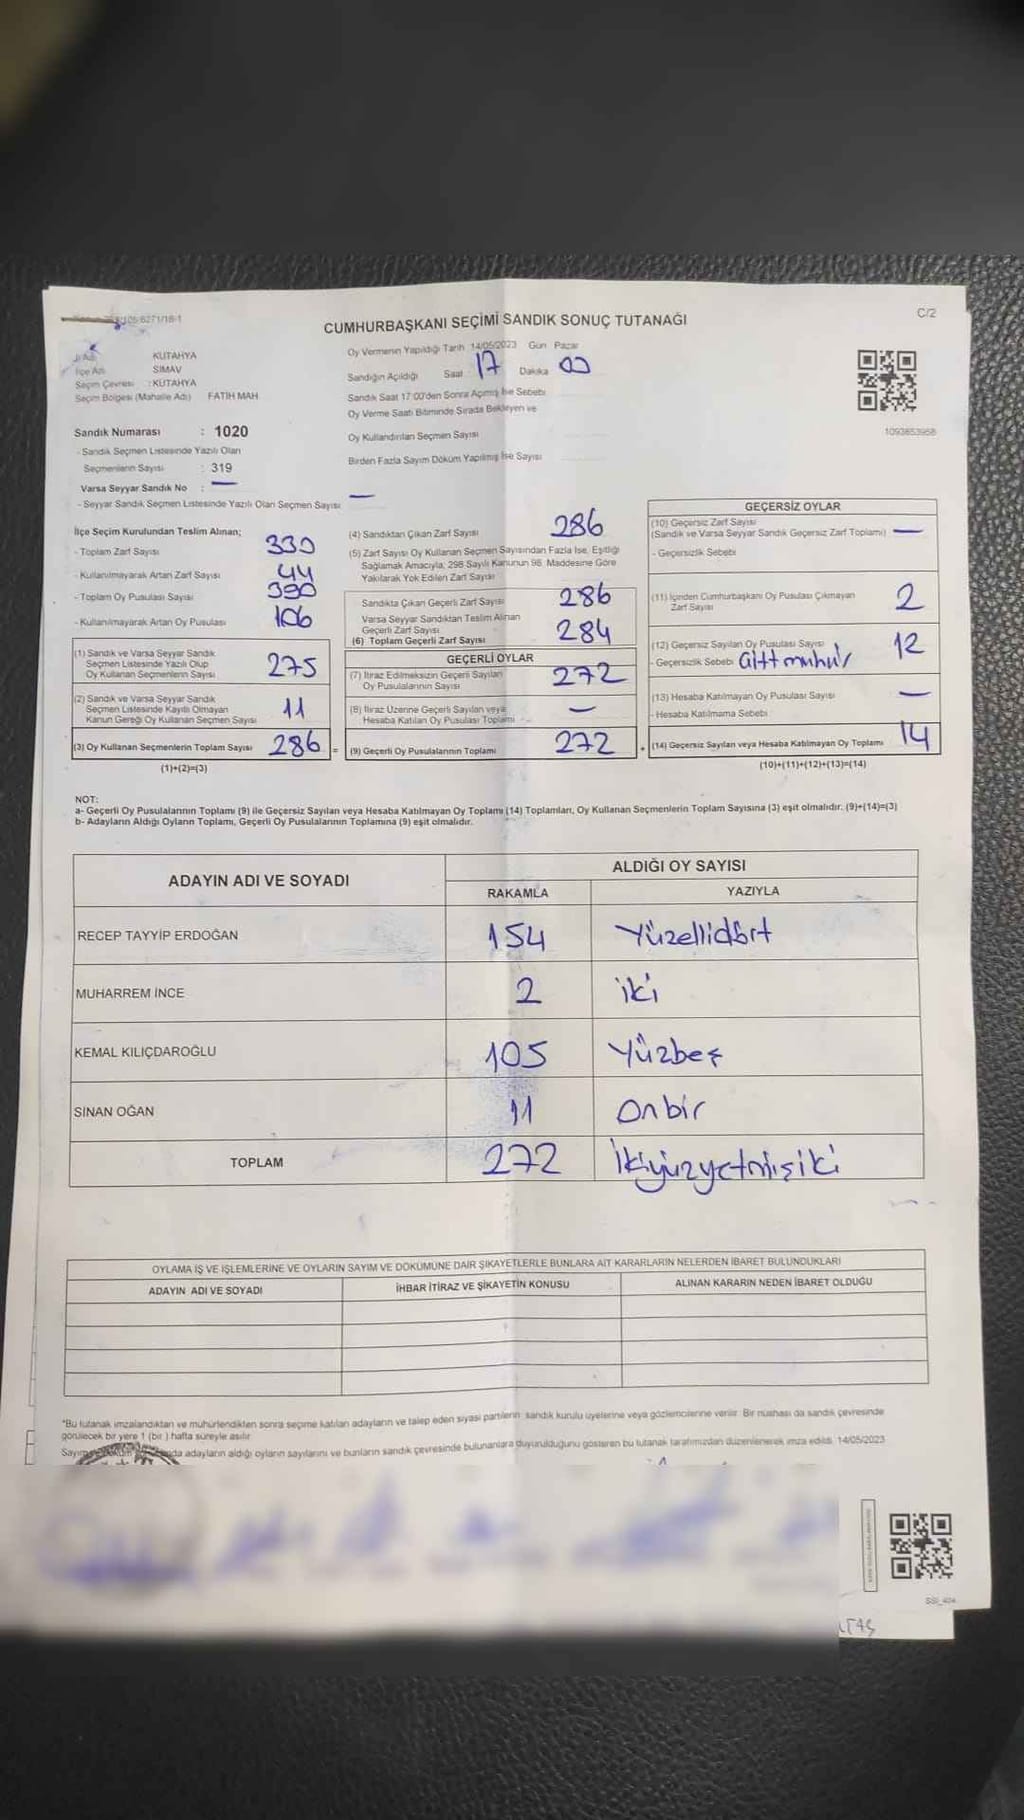 C/2
CUMHURBAŞKANI SEÇİMİ SANDIK SONUÇ TUTANAĞI
İl Adı KÜTAHYA
İlçe Adı SİMAV
Seçim Çevresi : KÜTAHYA
Seçim Bölgesi (Mahalle Adı) FATİH MAH
Oy Vermenin Yapıldığı Tarih 14/05/2023 Gün Pazar
Sandığın Açıldığı Saat 17 Dakika 00
Sandık Saat 17:00'den Sonra Açılmış İse Sebebi
Oy Verme Saati Bitiminde Sırada Bekleyen ve
Oy Kullandırılan Seçmen Sayısı
Birden Fazla Sayım Döküm Yapılmış İse Sayısı
1093853958
Sandık Numarası : 1020
- Sandık Seçmen Listesinde Yazılı Olan
Seçmenlerin Sayısı : 319
Varsa Seyyar Sandık No : —
- Seyyar Sandık Seçmen Listesinde Yazılı Olan Seçmen Sayısı —
İlçe Seçim Kurulundan Teslim Alınan;
- Toplam Zarf Sayısı 330
- Kullanılmayarak Artan Zarf Sayısı 44
- Toplam Oy Pusulası Sayısı 390
- Kullanılmayarak Artan Oy Pusulası 106
(1) Sandık ve Varsa Seyyar Sandık
Seçmen Listesinde Yazılı Olup
Oy Kullanan Seçmenlerin Sayısı 275
(2) Sandık ve Varsa Seyyar Sandık
Seçmen Listesinde Kayıtlı Olmayan
Kanun Gereği Oy Kullanan Seçmen Sayısı 11
(3) Oy Kullanan Seçmenlerin Toplam Sayısı 286 =
(1)+(2)=(3)
(4) Sandıktan Çıkan Zarf Sayısı 286
(5) Zarf Sayısı Oy Kullanan Seçmen Sayısından Fazla İse, Eşitliği
Sağlamak Amacıyla, 298 Sayılı Kanunun 98. Maddesine Göre
Yakılarak Yok Edilen Zarf Sayısı
Sandıkta Çıkan Geçerli Zarf Sayısı 286
Varsa Seyyar Sandıktan Teslim Alınan
Geçerli Zarf Sayısı
(6) Toplam Geçerli Zarf Sayısı 284
GEÇERLİ OYLAR
(7) İtiraz Edilmeksizin Geçerli Sayılan
Oy Pusulalarının Sayısı 272
(8) İtiraz Üzerine Geçerli Sayılan veya
Hesaba Katılan Oy Pusulası Toplamı —
(9) Geçerli Oy Pusulalarının Toplamı 272 +
GEÇERSİZ OYLAR
(10) Geçersiz Zarf Sayısı
(Sandık ve Varsa Seyyar Sandık Geçersiz Zarf Toplamı) —
- Geçersizlik Sebebi
(11) İçinden Cumhurbaşkanı Oy Pusulası Çıkmayan
Zarf Sayısı 2
(12) Geçersiz Sayılan Oy Pusulası Sayısı 12
- Geçersizlik Sebebi Çift mühür
(13) Hesaba Katılmayan Oy Pusulası Sayısı —
- Hesaba Katılmama Sebebi
(14) Geçersiz Sayılan veya Hesaba Katılmayan Oy Toplamı 14
(10)+(11)+(12)+(13)=(14)
NOT:
a- Geçerli Oy Pusulalarının Toplamı (9) ile Geçersiz Sayılan veya Hesaba Katılmayan Oy Toplamı (14) Toplamları, Oy Kullanan Seçmenlerin Toplam Sayısına (3) eşit olmalıdır. (9)+(14)=(3)
b- Adayların Aldığı Oyların Toplamı, Geçerli Oy Pusulalarının Toplamına (9) eşit olmalıdır.
ADAYIN ADI VE SOYADI ALDIĞI OY SAYISI
RAKAMLA YAZIYLA
RECEP TAYYİP ERDOĞAN 154 Yüzellidört
MUHARREM İNCE 2 iki
KEMAL KILIÇDAROĞLU 105 Yüzbeş
SİNAN OĞAN 11 Onbir
TOPLAM 272 İkiyüzyetmişiki
OYLAMA İŞ VE İŞLEMLERİNE VE OYLARIN SAYIM VE DÖKÜMÜNE DAİR ŞİKAYETLERLE BUNLARA AİT KARARLARIN NELERDEN İBARET BULUNDUKLARI
ADAYIN ADI VE SOYADI İHBAR İTİRAZ VE ŞİKAYETİN KONUSU ALINAN KARARIN NEDEN İBARET OLDUĞU
*Bu tutanak imzalandıktan ve mühürlendikten sonra seçime katılan adayların ve talep eden siyasi partilerin sandık kurulu üyelerine veya gözlemcilerine verilir. Bir nüshası da sandık çevresinde
görülecek bir yere 1 (bir) hafta süreyle asılır.
adayların aldığı oyların sayılarını ve bunların sandık çevresinde bulunanlara duyurulduğunu gösteren bu tutanak tarafımızdan düzenlenerek imza edildi. 14/05/2023